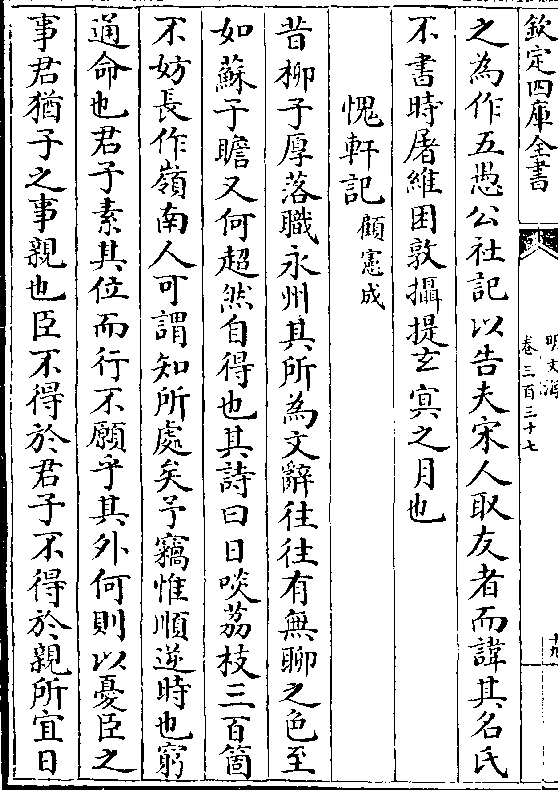 欽定四庫全書
明文海
卷三百三十七
十九
之為作五愚公社記以告夫宋人取友者而諱其名氏
不書時屠維困敦攝提玄冥之月也
愧軒記 顧憲成
昔柳子厚落職永州其所為文辭往往有無聊之色至
如蘇子瞻又何超然自得也其詩曰日啖荔枝三百箇
不妨長作嶺南人可謂知所處矣予竊惟順逆時也窮
通命也君子素其位而行不願乎其外何則以憂臣之
事君猶子之事親也臣不得於君子不得於親所宜日